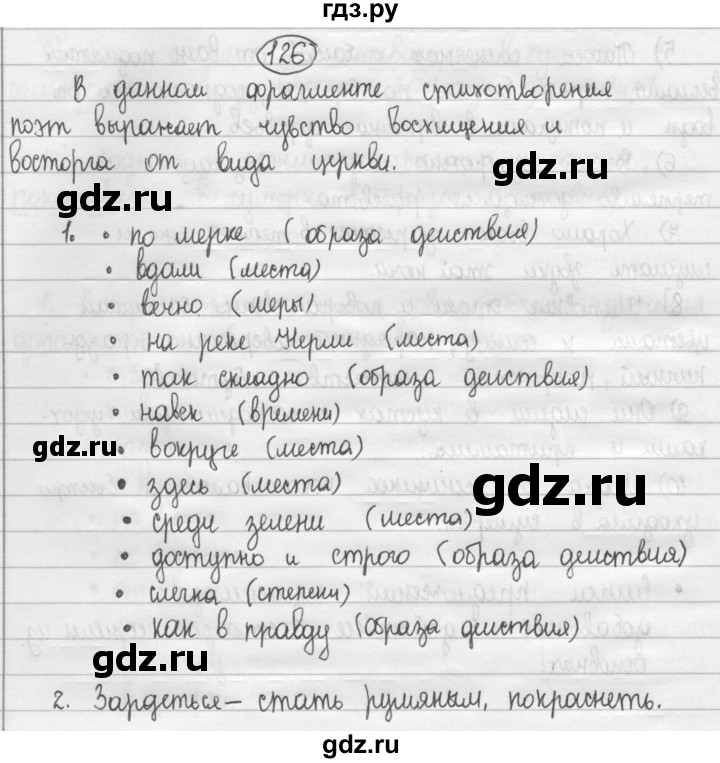 гдз.ру
126
В данном фрагменте стихотворения
поэт выражает чувство восхищения и
восторга от вида церкви.
gdz.ru
gdz.ru
1. • по мерке (образа действия)
• вдали (места)
• вечно (меры)
• на реке Нерли (места)
• так складно (образа действия)
• навек (времени)
gdz.ru
• вокруге (места)
• здесь (места)
gdz.ru
• среди зелени (места)
• доступно и строго (образа действия)
• слегка (степени)
• как в правду (образа действия)
gdz.ru
2. Зардеться – стать румяным, покраснеть.
gdz.ru